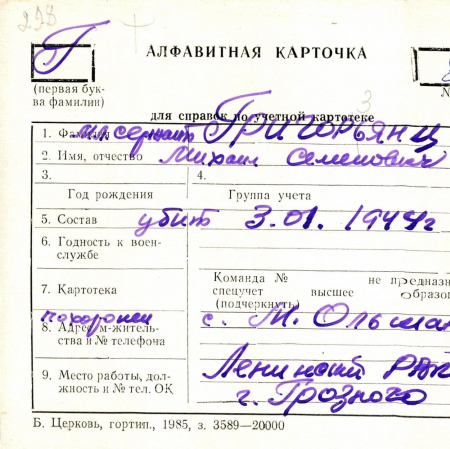 298
Г
АЛФАВИТНАЯ КАРТОЧКА
(первая бук-
ва фамилии)
№
для справок по учетной картотеке
3
1. Фамилия мл сержант Григорьянц
2. Имя, отчество Михаил Семенович
3. 4.
Год рождения Группа учета
5. Состав убит 3.01.1944г
6. Годность к воен-
службе
Команда № не предназн
7. Картотека спецучет высшее образо
(подчеркнуть)
похоронен с. М. Ольшан
8. Адрес м-житель-
ства и № телефона
Ленинский РВК
9. Место работы, дол-
жность и № тел. ОК г. Грозного
Б. Церковь, гортип., 1985, з. 3589—20000